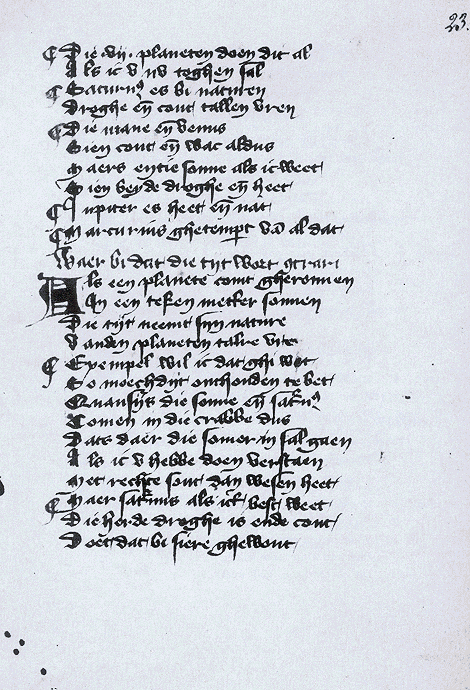 23.
¶ Die .vij. planeten doen dit al
Als ic v nv toghen sal
¶ Saturnꝰ es bi naturen
Droghe eñ cout tallen vren
¶ Die mane eñ venus
Sien cout eñ wac aldus
Maers entie sonne als ic weet
Sien beyde droghe eñ heet
¶ Jupiter es heet eñ nat
¶ Marcurius ghetempt vā al dat
Waer bi dat die tijt wort ꝯtrari
Als een planete comt gheronnen
In een teken metter sonnen
Die tijt neemt sijn nature
Vanden planeten talre vre
¶ Exempel wil ic dat ghi wet
So moechdijt onthouden te bet
Quansijs die sonne eñ satꝰnꝰ
Comen in die crabbe dus
Dats daer die somer in sal gaen
Als ic v hebbe doen verstaen
Met rechte sout dan wesen heet
¶ Maer saturnus als ict best weet
Die horde droghe is ende cout
Doet dat bi siere ghewout